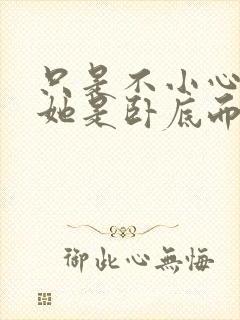 只是不小心
她是卧底而
御此心無悔